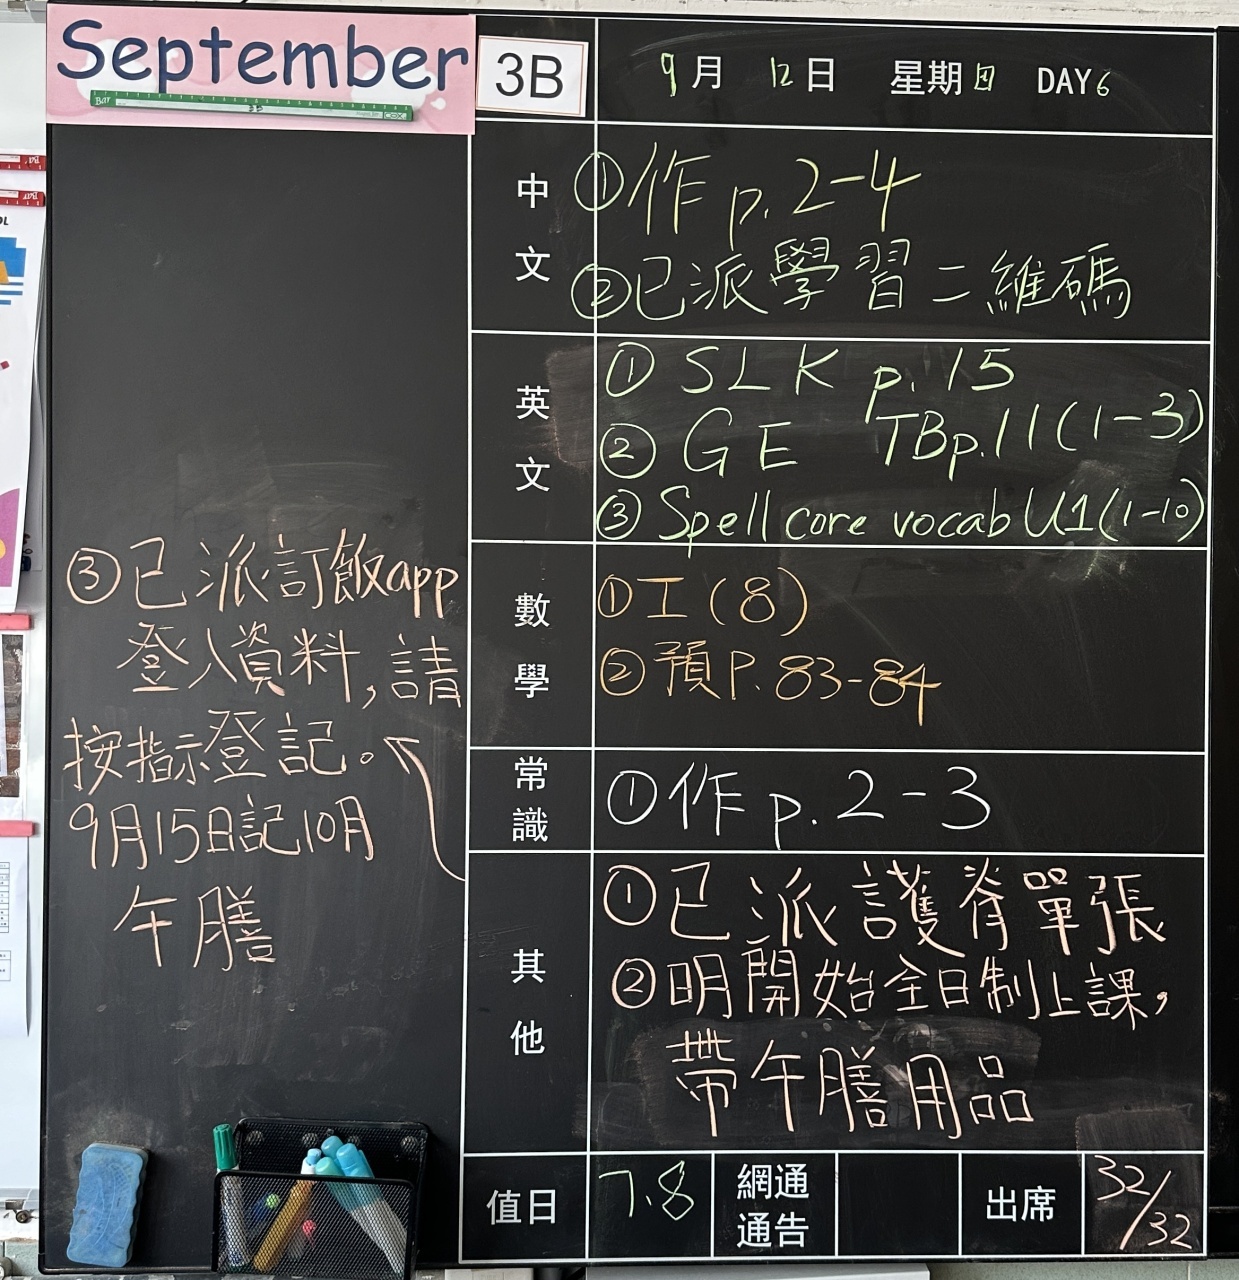 September
3B
9月 12日 星期四 DAY6
中文
①作 p.2-4
②已派學習二維碼
英文
① SLK p.15
② GE TBp.11(1-3)
③ Spell core vocab U1(1-10)
數學
①工(8)
②預P.83-84
常識
①作 p.2-3
其他
①已派護脊單張
②明開始全日制上課，
帶午膳用品
③已派訂飯app
登入資料，請
按指示登記。
9月15日記10月
午膳
值日 7.8 網通通告 出席 32/32